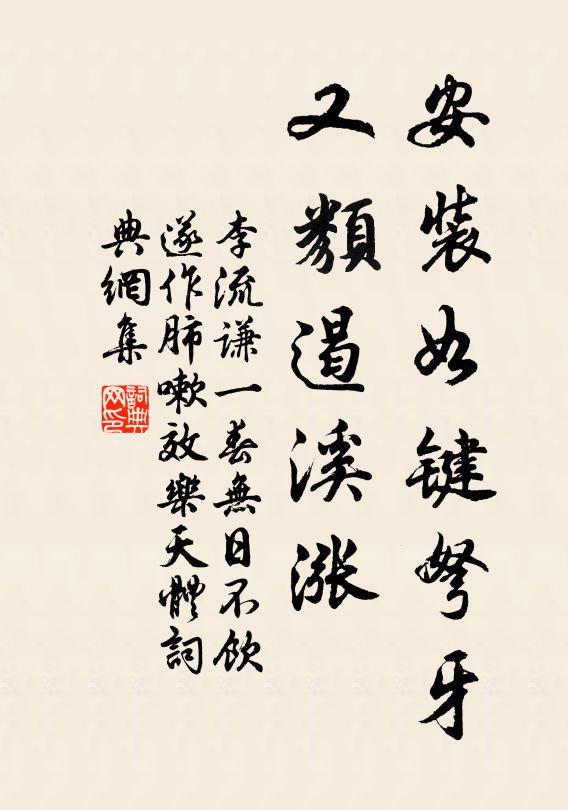 安裝如鍵弩牙
又類遏溪漲
李流謙一春無日不飲
遂作肺嗽效樂天體詞
典網集
詞典
网印